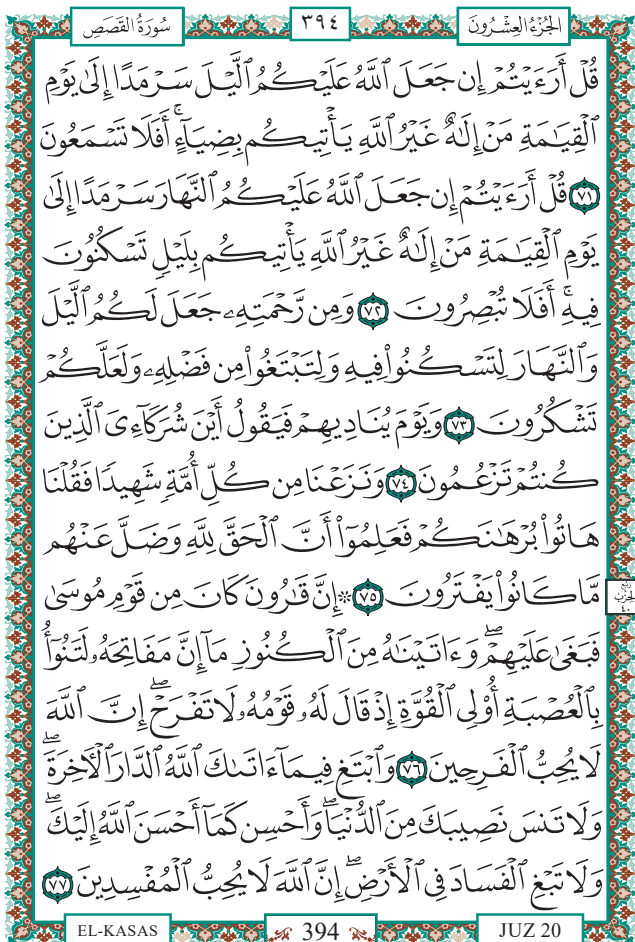 سُورَةُ القَصَصِ ٣٩٤ الجُزْءُ العِشْرُونَ
قُلْ أَرَءَيْتُمْ إِن جَعَلَ ٱللَّهُ عَلَيْكُمُ ٱلَّيْلَ سَرْمَدًا إِلَىٰ يَوْمِ
ٱلْقِيَٰمَةِ مَنْ إِلَٰهٌ غَيْرُ ٱللَّهِ يَأْتِيكُم بِضِيَآءٍۚ أَفَلَا تَسْمَعُونَ
٧١ قُلْ أَرَءَيْتُمْ إِن جَعَلَ ٱللَّهُ عَلَيْكُمُ ٱلنَّهَارَ سَرْمَدًا إِلَىٰ
يَوْمِ ٱلْقِيَٰمَةِ مَنْ إِلَٰهٌ غَيْرُ ٱللَّهِ يَأْتِيكُم بِلَيْلٍ تَسْكُنُونَ
فِيهِۚ أَفَلَا تُبْصِرُونَ ٧٢ وَمِن رَّحْمَتِهِۦ جَعَلَ لَكُمُ ٱلَّيْلَ
وَٱلنَّهَارَ لِتَسْكُنُوا۟ فِيهِ وَلِتَبْتَغُوا۟ مِن فَضْلِهِۦ وَلَعَلَّكُمْ
تَشْكُرُونَ ٧٣ وَيَوْمَ يُنَادِيهِمْ فَيَقُولُ أَيْنَ شُرَكَآءِىَ ٱلَّذِينَ
كُنتُمْ تَزْعُمُونَ ٧٤ وَنَزَعْنَا مِن كُلِّ أُمَّةٍ شَهِيدًا فَقُلْنَا
هَاتُوا۟ بُرْهَٰنَكُمْ فَعَلِمُوٓا۟ أَنَّ ٱلْحَقَّ لِلَّهِ وَضَلَّ عَنْهُم
مَّا كَانُوا۟ يَفْتَرُونَ ٧٥ ۞ إِنَّ قَٰرُونَ كَانَ مِن قَوْمِ مُوسَىٰ
فَبَغَىٰ عَلَيْهِمْۖ وَءَاتَيْنَٰهُ مِنَ ٱلْكُنُوزِ مَآ إِنَّ مَفَاتِحَهُۥ لَتَنُوٓأُ
بِٱلْعُصْبَةِ أُو۟لِى ٱلْقُوَّةِ إِذْ قَالَ لَهُۥ قَوْمُهُۥ لَا تَفْرَحْۖ إِنَّ ٱللَّهَ
لَا يُحِبُّ ٱلْفَرِحِينَ ٧٦ وَٱبْتَغِ فِيمَآ ءَاتَىٰكَ ٱللَّهُ ٱلدَّارَ ٱلْءَاخِرَةَۖ
وَلَا تَنسَ نَصِيبَكَ مِنَ ٱلدُّنْيَاۖ وَأَحْسِن كَمَآ أَحْسَنَ ٱللَّهُ إِلَيْكَۖ
وَلَا تَبْغِ ٱلْفَسَادَ فِى ٱلْأَرْضِۖ إِنَّ ٱللَّهَ لَا يُحِبُّ ٱلْمُفْسِدِينَ ٧٧
EL-KASAS 394 JUZ 20